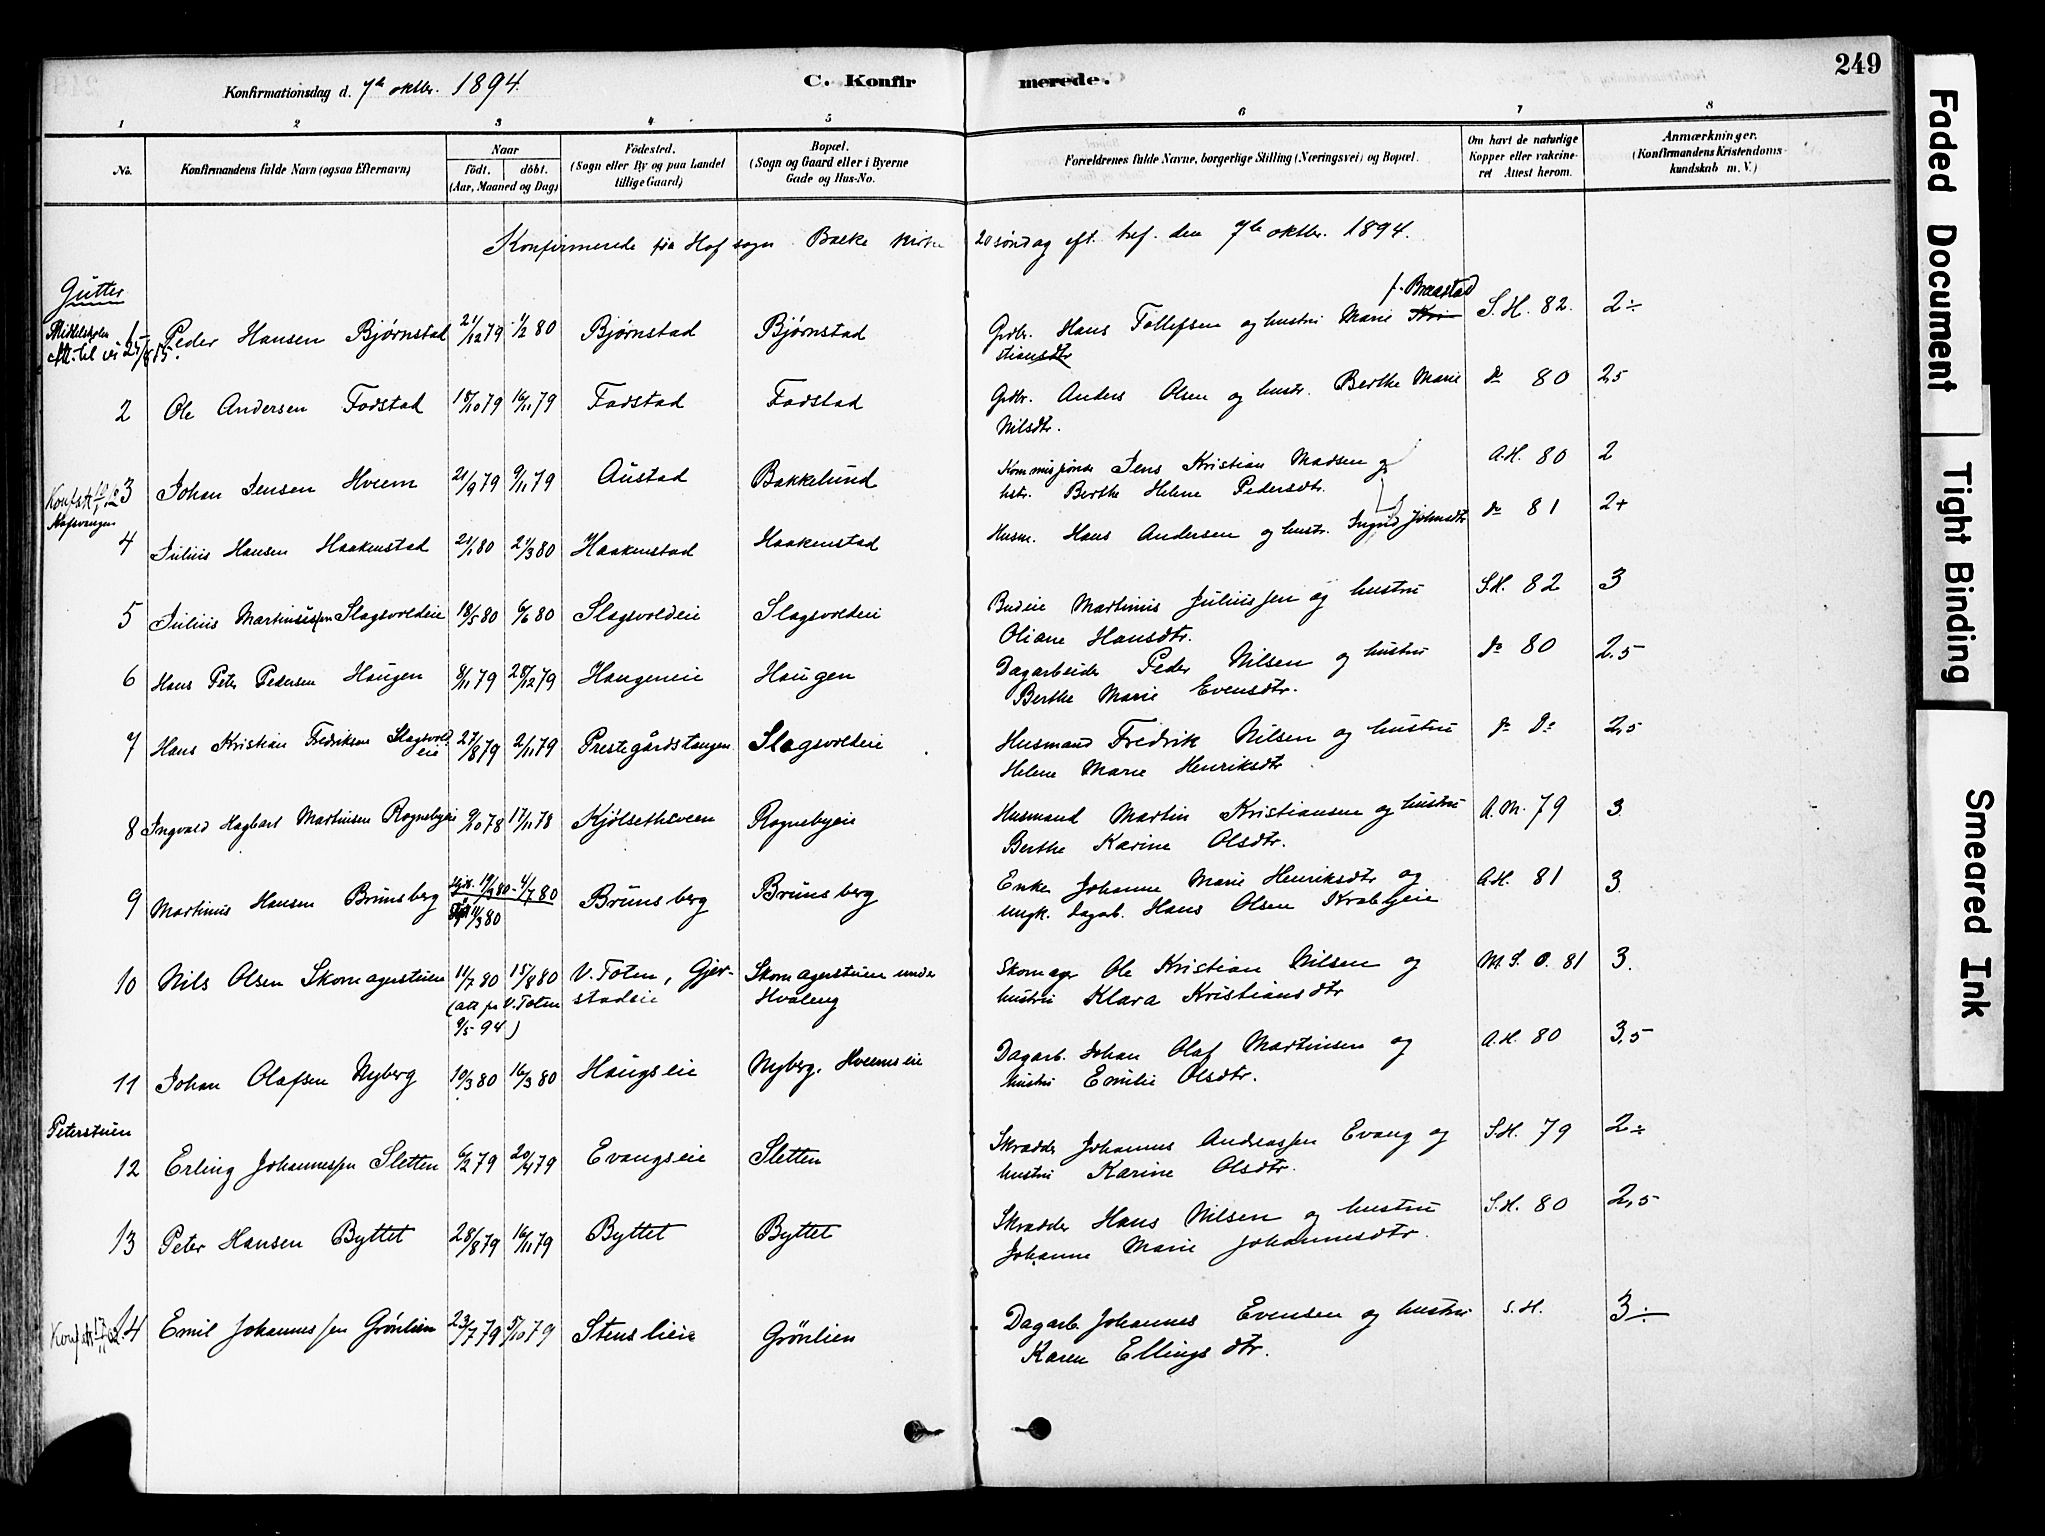 249
Konfirmationsdag d. 7de oktbr. 1894.
C. Konfirmerede.
1 2 3 4 5 6 7 8
No. Konfirmandens fulde Navn (ogsaa Efternavn) Naar födt. döbt. (Aar, Maaned og Dag) Födested. (Sogn eller By og paa Landet tillige Gaard) Bopæl. (Sogn og Gaard eller i Byerne Gade og Hus-No. Forældrenes fulde Navne, borgerlige Stilling (Næringsvei) og Bopæl. Om havt de naturlige Kopper eller vakcineret Attest herom. Anmærkninger. (Konfirmandens Kristendomskundskab m. V.)
Konfirmerede fra Hof sogn Balke kirke 20 söndag eft. tref. den 7de oktbr. 1894.
Gutter
1 Peder Hansen Bjørnstad 21/12 79 1/2 80 Bjørnstad Bjørnstad Grdbr. Hans Tollefsen og hustru Marie Kristiansdtr f. Braastad S.H. 82. 2÷
2 Ole Andersen Fodstad 18/10 79 16/11 79 Fodstad Fodstad Grdbr. Anders Olsen og hustr. Berthe Marie Nilsdtr. do 80 2,5
3 Johan Jensen Hveem 21/9 79 9/11 79 Austad Bakkelund Jens Kristian Madsen og hstr. Berthe Helene Pedersdtr. A.H. 80 2
4 Julius Hansen Haakenstad 21/1 80 21/3 80 Haakenstad Haakenstad Husm. Hans Andersen og hustr. Ingrid Johnsdtr do 81 2+
5 Julius Martinussen Slagsvoldeie 18/5 80 6/6 80 Slagsvoldeie Slagsvoldeie Martinus Juliussen og hustru Oliane Hansdtr. S.H. 82 3
6 Hans Peter Pedersen Haugen 8/11 79 28/12 79 Haugeneie Haugen Dagarbeider Peder Nilsen og hustru Berthe Marie Evensdtr. do 80 2.5
7 Hans Kristian Fredriksen Slagsvoldeie 27/8 79 2/11 79 Prestegårdstangen Slagsvoldeie Husmand Fredrik Nilsen og hustru Helene Marie Henriksdtr do do 2,5
8 Ingvald Hagbart Martinsen Rognebyeie 9/10 78 17/11 78 Kjölsethsveen Rognebyeie Husmand Martin Kristiansen og hustru Berthe Karine Olsdtr. A.M. 79 3.
9 Martinus Hansen Brunsberg 4/7 80 11/3 80 Brunsberg Brunsberg Enke Johanne Marie Henriksdtr og ungk. dagarb. Hans Olsen Krabyeie A.H. 81 3.
10 Nils Olsen Skomagerstuen 11/7 80 15/8 80 V. Toten, Gjerstadeie Skomagerstuen under Hvaleng Skomager Ole Kristian Nilsen og hustru Klara Kristiansdtr M.S.O. 81 3.
(att fra V. Toten 9/5 94)
11 Johan Olafsen Nyberg 10/3 80 16/3 80 Haugseie Nyberg, Hveemseie Dagarb. Johan Olaf Martinsen og hustru Emilie Olsdtr. A.H. 80 3.5
Peterstuen
12 Erling Johannessen Sletten 6/2 79 20/4 79 Evangseie Sletten Skrædder Johannes Andreassen Evang og hustru Karine Olsdtr. S.H. 79 2÷
13 Peter Hansen Byttet 28/8 79 16/11 79 Byttet Byttet Skrædder Hans Nilsen og hustru Johanne Marie Johannesdtr. S.H. 80 2,5
14 Emil Johannessen Grönlien 23/7 79 5/10 79 Stenslieie Grönlien Dagarb. Johannes Evensen og hustru Karen Ellingsdtr. S.H. 3÷
Faded Document
Tight Binding
Smeared Ink